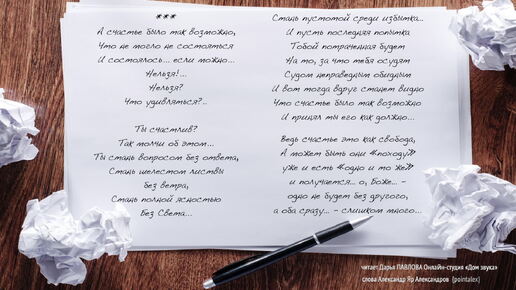 ***
А счастье было так возможно,
Что не могло не состояться
И состоялось... если можно...
Нельзя!...
Нельзя?
Что удивляться?..
Ты счастлив?
Так молчи об этом...
Ты стань вопросом без ответа,
Стань шелестом листвы
без ветра,
Стань полной ясностью
Без Света...
Стань пустотой среди избытка...
И пусть последняя попытка
Тобой потраченная будет
На то, за что тебя осудят
Судом неправедным обидным
И вот тогда вдруг станет видно
Что счастье было так возможно
И принял ты его как должно...
Ведь счастье это как свобода,
А может быть они «походу»
уже и есть «одно и то же»
и получается... о, Боже... -
одно не будет без другого,
а оба сразу... - слишком много...
читает Дарья ПАВЛОВА Онлайн-студия «Дом звука»
слова Александр Яр Александров (pointalex)